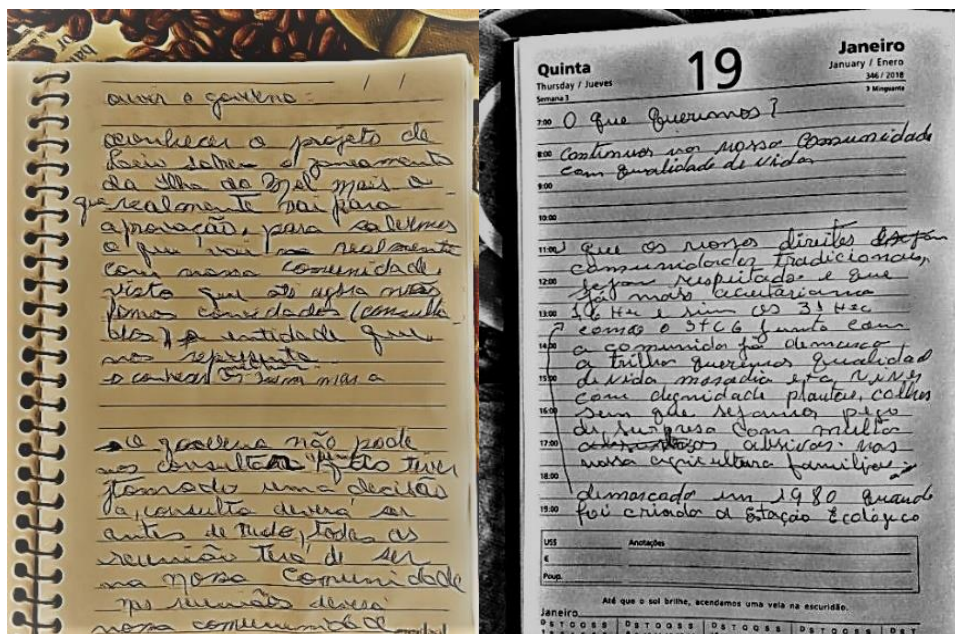 ouvir o governo. / /
conhecer o projeto de
sobre o zoneamento
da Ilha do Mel mais o
que realmente vai para
aprovação, para sabermos
o que vai realmente
com nossa comunidade,
visto que até agora
fomos convidados (consulta
dos) entidade que
nos representa.
o mas a
o governo não pode
nos consultar tiver
tomado uma decisão
a, consulta deverá ser
antes de tudo, todas as
reunião terá de ser
na nossa comunidade
nas reuniões deverá
nossa comunidade
Quinta
Thursday / Jueves
Semana 3
19
Janeiro
January / Enero
346 / 2018
3 Minguante
7:00 O que queremos?
8:00 Continuar na nossa Comunidade
com qualidade de vida
9:00
10:00
11:00 que os nossos direitos
comunidades tradicionais,
12:00 sejam respeitado e que
já mais aceitariamos
13:00 16 Hec e sim os 31 Hec
como o junto com
14:00 a comunida já demarco,
a trilha queremos qualidad
15:00 di vida moradia e viver
com dignidade plantar, colher
16:00 sem que sejamos pego
di surpresa com multa
17:00 abusivas nas
nossa agricultura familiar
18:00
demarcado em 1980 quando
19:00 foi criado a Estação Ecológico
US$ Anotações
€
Poup.
Até que o sol brilhe, acendamos uma vela na escuridão.
Janeiro
D S T Q Q S S D S T Q Q S S D S T Q Q S S D S T